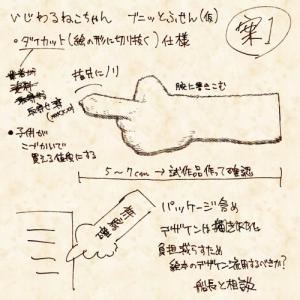 いじわるねこちゃん プニッとふせん(仮)
案1
・ダイカット(絵の形に切り抜く)仕様
指先にノリ
腕に書きこむ
・子供が
こづかいで
買える値段にする
5〜7cm → 試作品作って確認
パッケージ含め
デザインは描き文字
負担減らすため
絵本のデザイン流用するべきか?
船長と相談